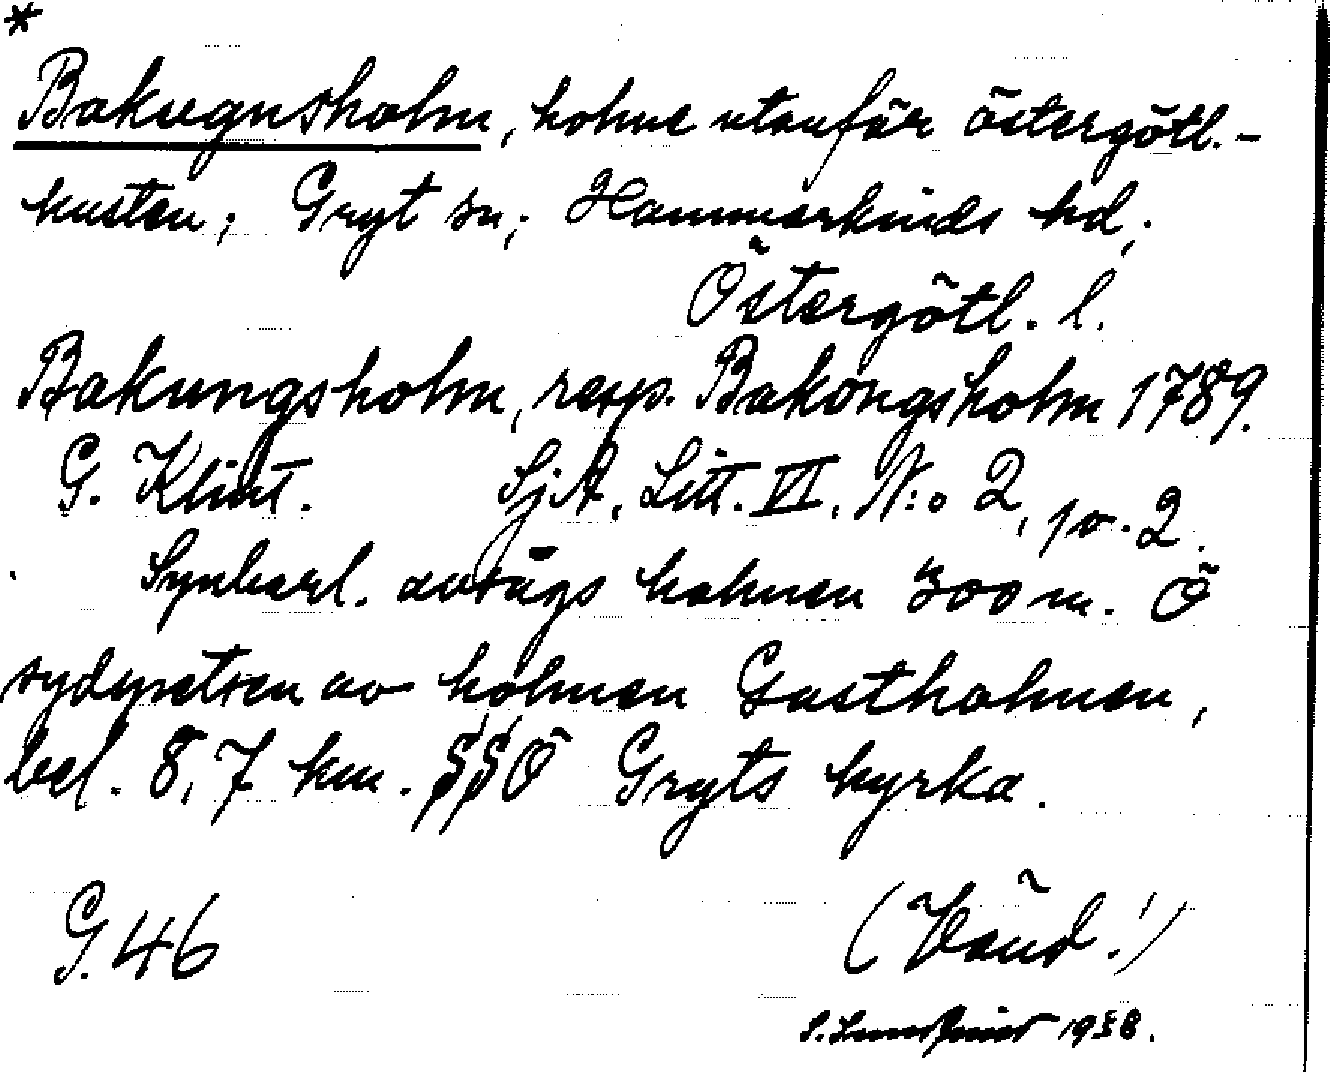 *
Bakugnsholm, holme utanför östergötl.-
kusten; Gryt sn; Hammarkinds hd;
Östergötl. l.
Bakungsholm, resp. Bakongsholm 1789.
G. Klint. SjA, Litt. VI, N:o 2, p. 2.
Synbarl. avsågs holmen 300 m. Ö
sydspetsen av holmen Gastholmen,
bel. 8,7 km. SSÖ Gryts kyrka.
G. 46 (Vänd!)
1938.